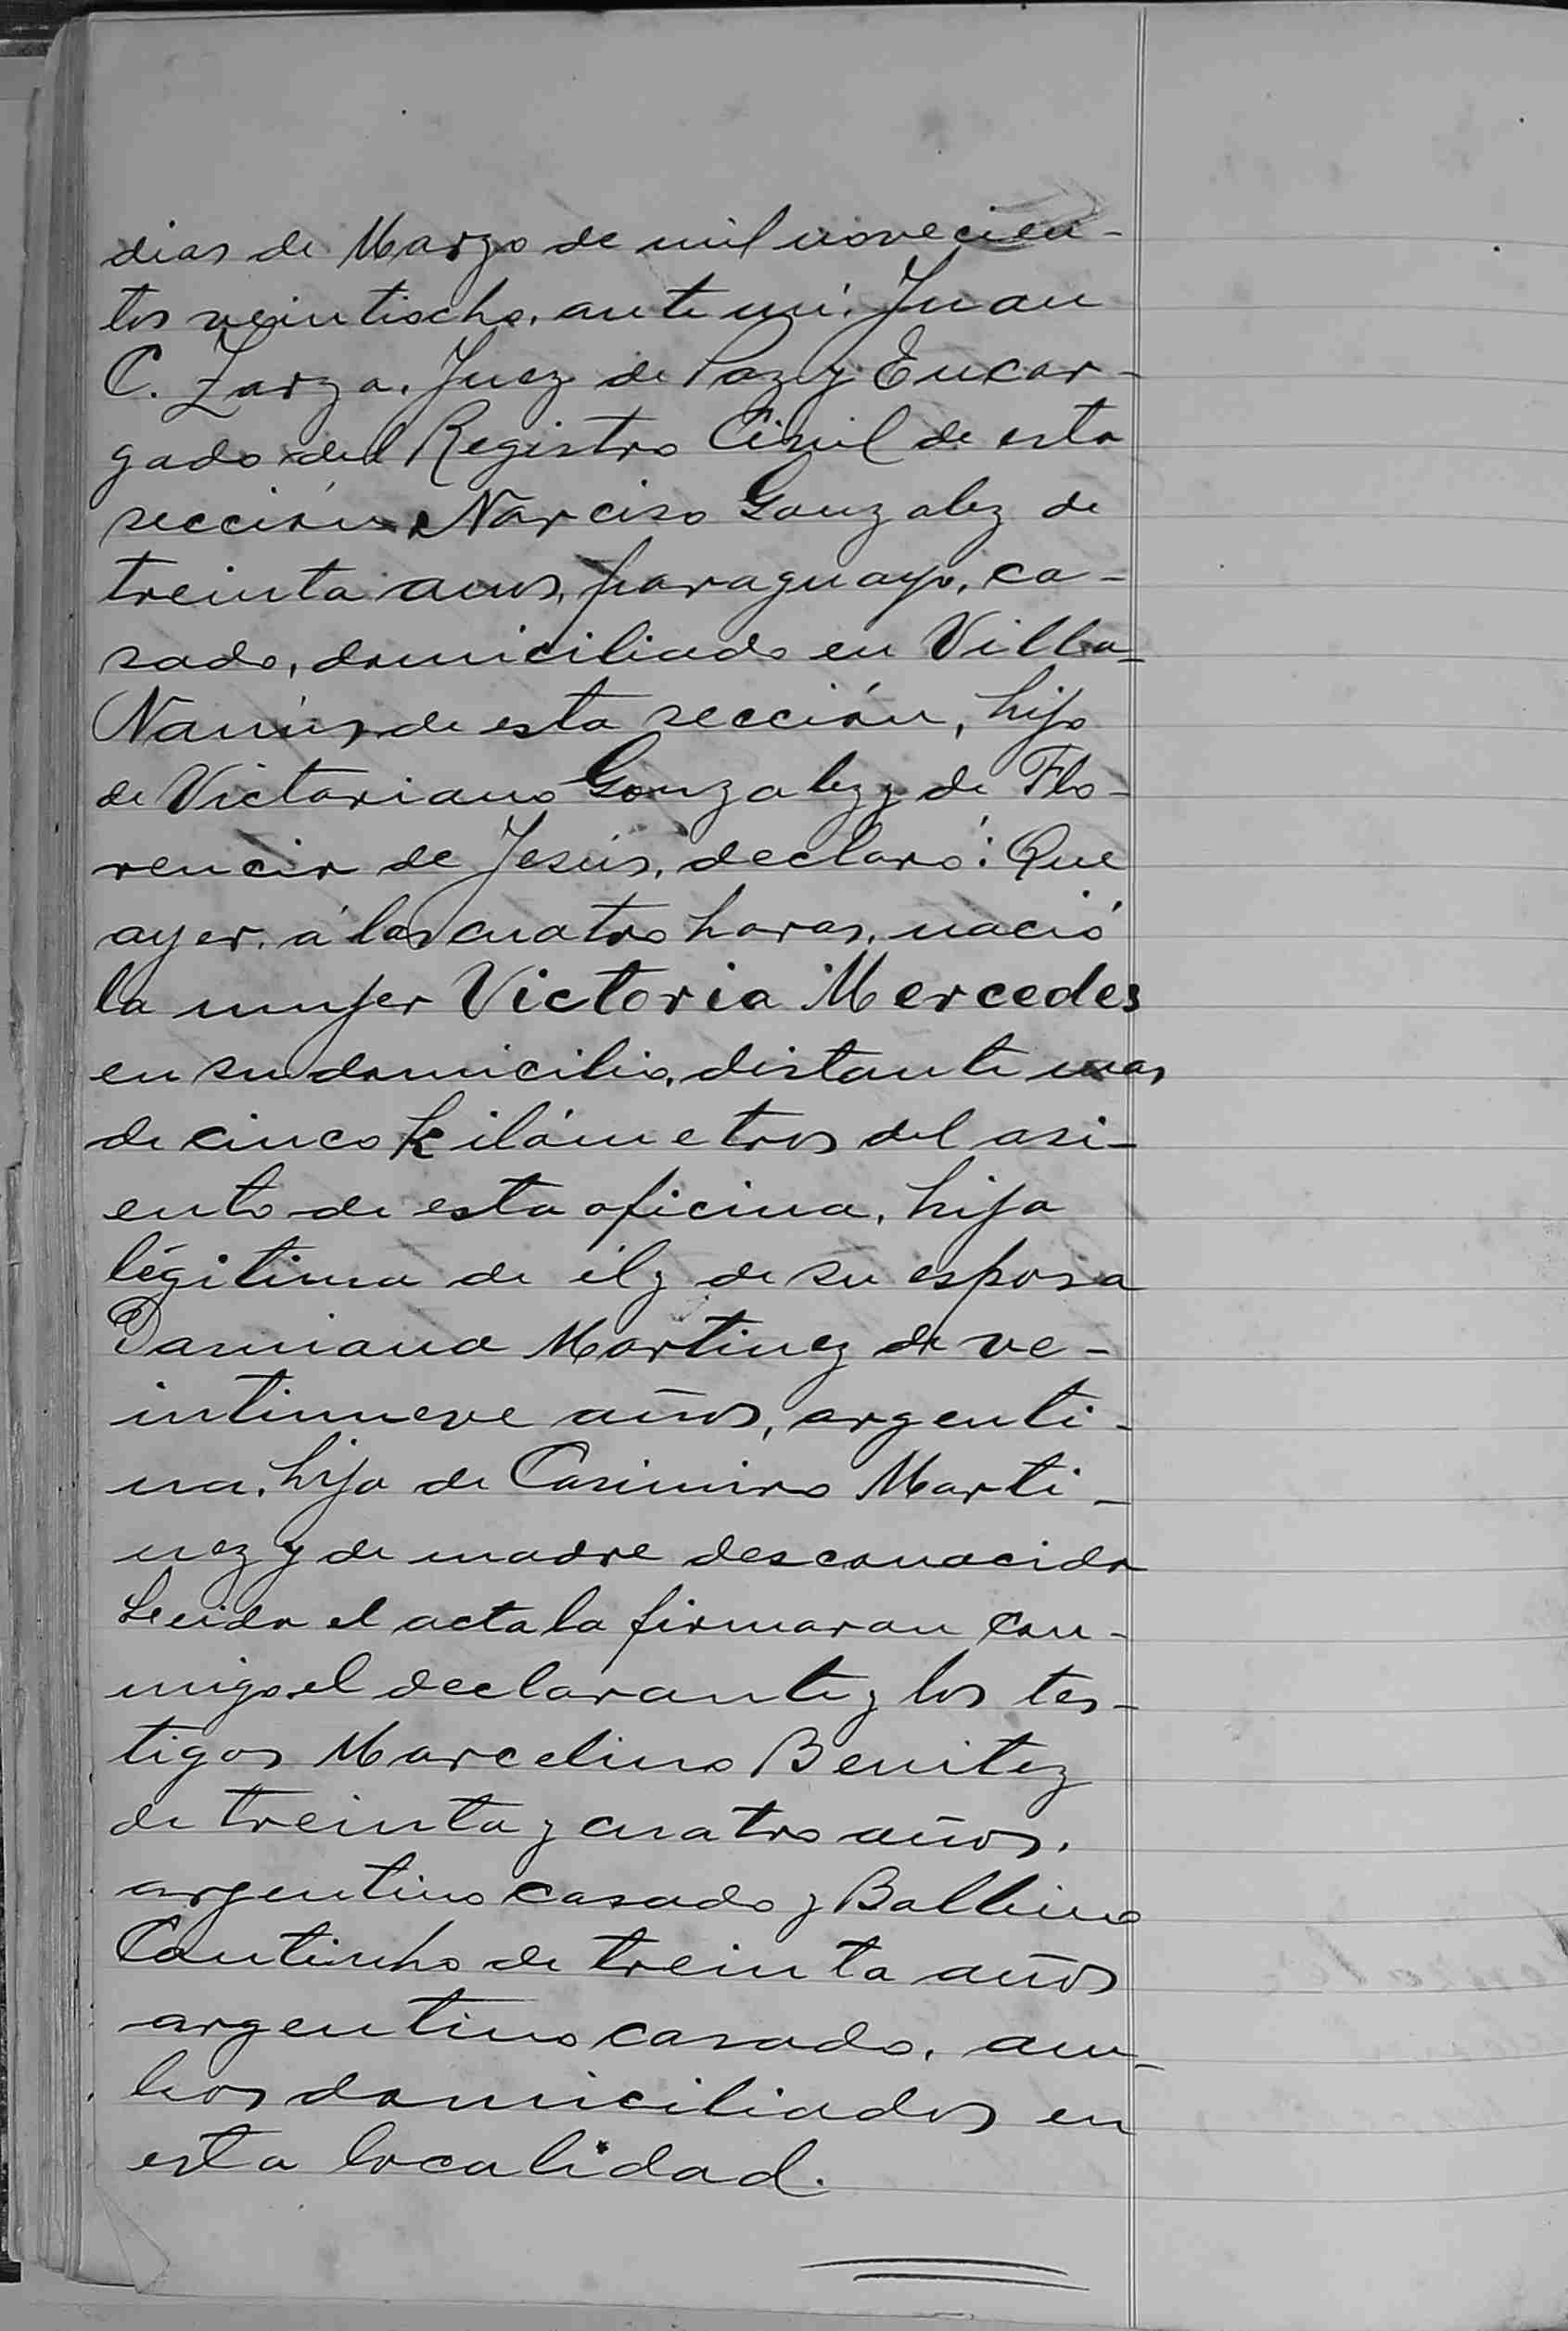 dias de Marzo de mil novecien-
tos veintiocho, ante mí, Juan
C. Zarza, Juez de Paz y Encar-
gado del Registro Civil de esta
sección, Narciso Gonzalez de
treinta años, paraguayo, ca-
sado, domiciliado en Villa-
de esta sección, hijo
de Victoriano Gonzalez y de Flo-
rencia de Jesús, declaró: Que
ayer, á las cuatro horas, nació
la mujer Victoria Mercedes
en su domicilio, distante mas
de cinco kilómetros del asi-
ento de esta oficina, hija
légitima de él y de su esposa
Damiana Martinez de ve-
intinueve años, argenti-
na, hija de Casimiro Marti-
nez y de madre desconocida
Leida el acta la firmaran con-
migo, el declarante y los tes-
tigos Marcelino Benitez
de treinta y cuatro años,
argentino casado y Balbino
Coutinho de treinta años
argentino casado, am-
bos domiciliados en
esta localidad.